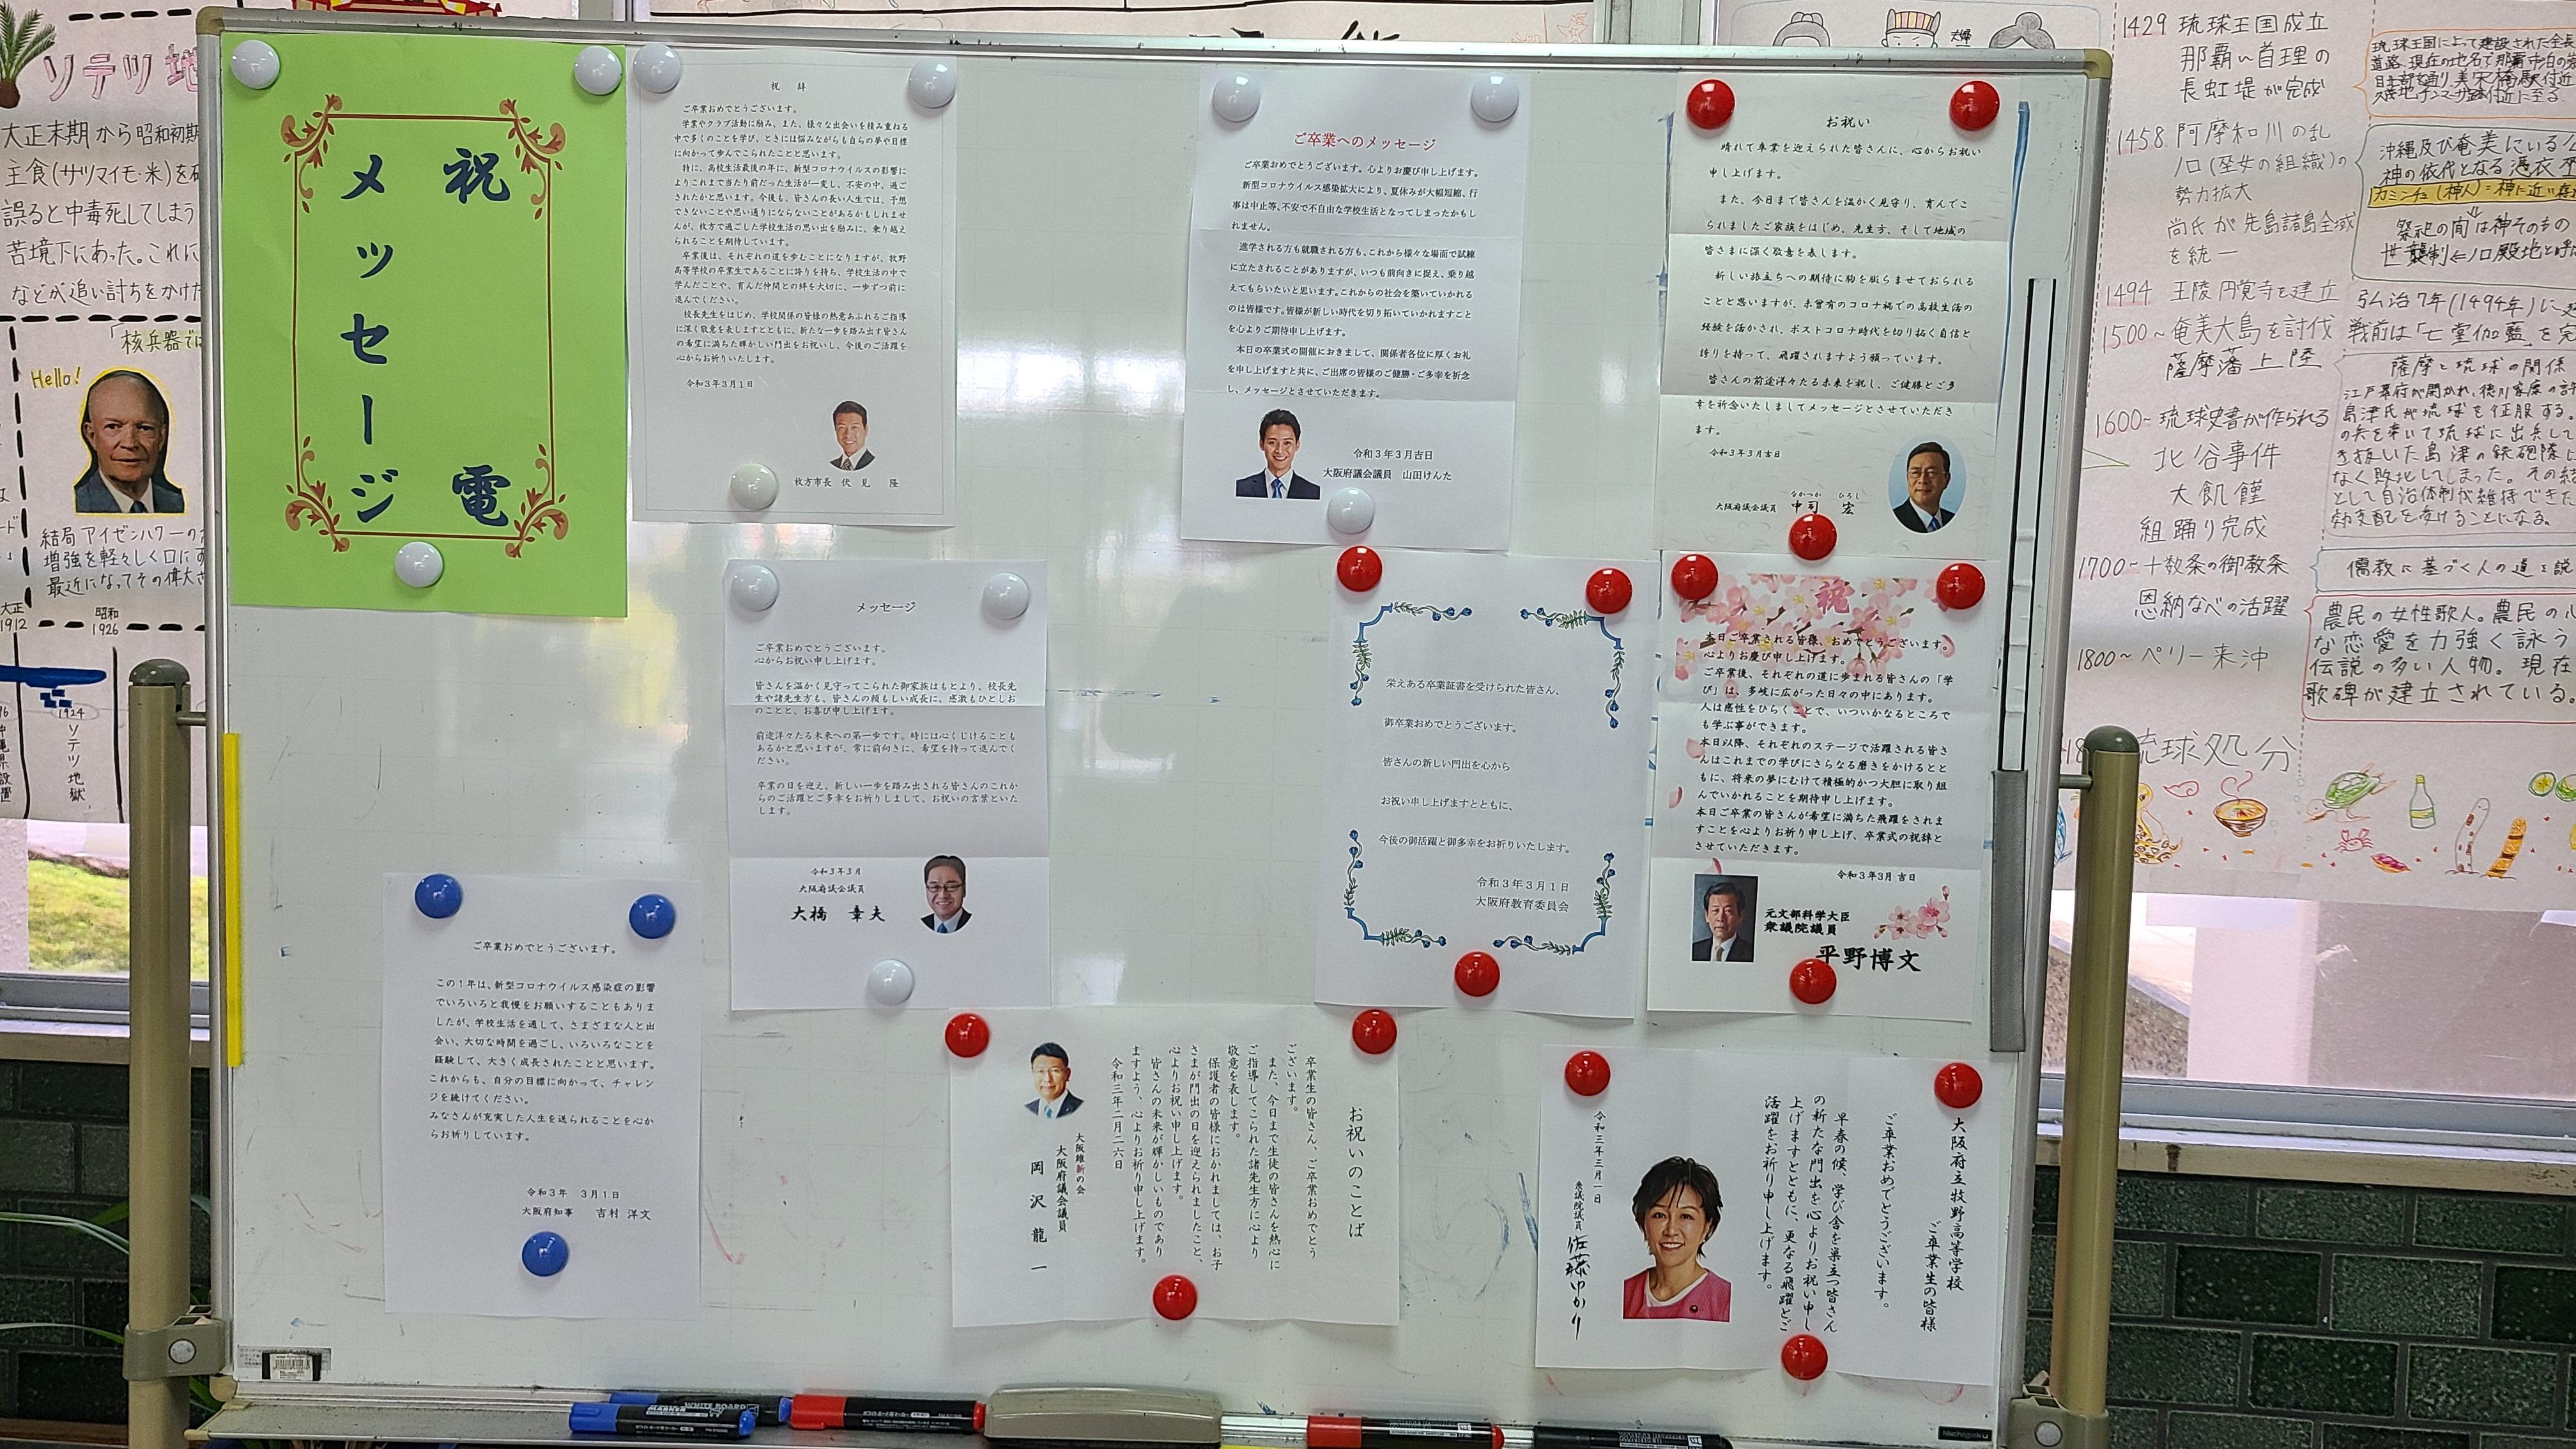 祝電
メッセージ
祝 辞
ご卒業おめでとうございます。
学業やクラブ活動に励み、また、様々な出会いを積み重ねる
中で多くのことを学び、ときには悩みながらも自らの夢や目標
に向かって歩んでこられたことと思います。
特に、高校生活最後の年に、新型コロナウイルスの影響に
よりこれまで当たり前だった生活が一変し、不安の中、過ご
されたかと思います。今後も、皆さんの長い人生では、予想
できないことや思い通りにならないことがあるかもしれませ
んが、枚方で過ごした学校生活の思い出を励みに、乗り越え
られることを期待しています。
卒業後は、それぞれの道を歩むことになりますが、牧野
高等学校の卒業生であることに誇りを持ち、学校生活の中で
学んだことや、育んだ仲間との絆を大切に、一歩ずつ前に
進んでください。
校長先生をはじめ、学校関係の皆様の熱意あふれるご指導
に深く敬意を表しますとともに、新たな一歩を踏み出す皆さん
の希望に満ちた輝かしい門出をお祝いし、今後のご活躍を
心からお祈りいたします。
令和3年3月1日
枚方市長 伏見 隆
ご卒業へのメッセージ
ご卒業おめでとうございます。心よりお慶び申し上げます。
新型コロナウイルス感染拡大により、夏休みが大幅短縮、行
事は中止等、不安で不自由な学校生活となってしまったかもし
れません。
進学される方も就職される方も、これから様々な場面で試練
に立たされることがありますが、いつも前向きに捉え、乗り越
えてもらいたいと思います。これからの社会を築いていかれる
のは皆様です。皆様が新しい時代を切り拓いていかれますこと
を心よりご期待申し上げます。
本日の卒業式の開催におきまして、関係者各位に厚くお礼
を申し上げますと共に、ご出席の皆様のご健勝・ご多幸を祈念
し、メッセージとさせていただきます。
令和3年3月吉日
大阪府議会議員 山田けんた
お祝い
晴れて卒業を迎えられた皆さんに、心からお祝い
申し上げます。
また、今日まで皆さんを温かく見守り、育んでこ
られましたご家族をはじめ、先生方、そして地域の
皆さまに深く敬意を表します。
新しい旅立ちへの期待に胸を膨らませておられる
ことと思いますが、未曾有のコロナ禍での高校生活の
経験を活かされ、ポストコロナ時代を切り拓く自信と
誇りを持って、飛躍されますよう願っています。
皆さんの前途洋々たる未来を祝し、ご健勝とご多
幸を祈念いたしましてメッセージとさせていただき
ます。
令和3年3月吉日
なかつか ひろし
大阪府議会議員 中司 宏
メッセージ
ご卒業おめでとうございます。
心からお祝い申し上げます。
皆さんを温かく見守ってこられた御家族はもとより、校長先
生や諸先生方も、皆さんの頼もしい成長に、感激もひとしお
のことと、お喜び申し上げます。
前途洋々たる未来への第一歩です。時には心くじけることも
あるかと思いますが、常に前向きに、希望を持って進んでく
ださい。
卒業の日を迎え、新しい一歩を踏み出される皆さんのこれか
らのご活躍とご多幸をお祈りしまして、お祝いの言葉といた
します。
令和3年3月
大阪府議会議員
大橋 章夫
栄えある卒業証書を受けられた皆さん、
御卒業おめでとうございます。
皆さんの新しい門出を心から
お祝い申し上げますとともに、
今後の御活躍と御多幸をお祈りいたします。
令和3年3月1日
大阪府教育委員会
祝
本日ご卒業される皆様、おめでとうございます。
心よりお慶び申し上げます。
ご卒業後、それぞれの道に歩まれる皆さんの「学
び」は、多岐に広がった日々の中にあります。
人は感性をひらくことで、いついかなるところで
も学ぶ事ができます。
本日以降、それぞれのステージで活躍される皆さ
んはこれまでの学びにさらなる磨きをかけるとと
もに、将来の夢にむけて積極的かつ大胆に取り組
んでいかれることを期待申し上げます。
本日ご卒業の皆さんが希望に満ちた飛躍をされま
すことを心よりお祈り申し上げ、卒業式の祝辞と
させていただきます。
令和3年3月 吉日
元文部科学大臣
衆議院議員
平野博文
ご卒業おめでとうございます。
この1年は、新型コロナウイルス感染症の影響
でいろいろと我慢をお願いすることもありま
したが、学校生活を通して、さまざまな人と出
会い、大切な時間を過ごし、いろいろなことを
経験して、大きく成長されたことと思います。
これからも、自分の目標に向かって、チャレン
ジを続けてください。
みなさんが充実した人生を送られることを心か
らお祈りしています。
令和3年 3月1日
大阪府知事 吉村 洋文
お祝いのことば
卒業生の皆さん、ご卒業おめでとう
ございます。
また、今日まで生徒の皆さんを熱心に
ご指導してこられた諸先生方に心より
敬意を表します。
保護者の皆様におかれましては、お子
さまが門出の日を迎えられましたこと、
心よりお祝い申し上げます。
皆さんの未来が輝かしいものであり
ますよう、心よりお祈り申し上げます。
令和三年二月二六日
大阪維新の会
大阪府議会議員
岡沢 龍一
大阪府立牧野高等学校
ご卒業生の皆様
ご卒業おめでとうございます。
早春の候、学び舎を巣立つ皆さん
の新たな門出を心よりお祝い申し
上げますとともに、更なる飛躍とご
活躍をお祈り申し上げます。
令和三年三月一日
衆議院議員 佐藤ゆかり
ソテツ地
大正末期から昭和初期
主食(サツマイモ・米)を
誤ると中毒死してしまう
苦境下にあった。これに
などが追い討ちをかけた
「核兵器では
Hello!
結局アイゼンハワーの
増強を軽々しく口にす
最近になってその偉大さ
大正
1912
昭和
1926
1924
ソテツ地獄
夫婦
1429 琉球王国成立
那覇〜首理の
長虹堤が完成
1458 阿摩和川の乱
ノロ(巫女の組織)の
勢力拡大
尚氏が先島諸島全域
を統一
1494 王陵円覚寺を建立
1500〜奄美大島を討伐
薩摩藩上陸
1600〜琉球史書が作られる
北谷事件
大飢饉
組踊り完成
1700〜十数条の御教条
恩納なべの活躍
1800〜ペリー来沖
琉球処分
琉球王国によって建設された全長
沖縄及び奄美にいる
神の依代となる憑衣
カミンチュ(神人)=神に近い存在
祭祀の間は神そのもの
世襲制⇐ノロ殿地と呼
弘治7年(1494年)に
戦前は「七堂伽藍」を完
薩摩と琉球の関係
江戸幕府が開かれ、徳川家康の許
島津氏が琉球を征服する。
の兵を率いて琉球に出兵して
き抜いた島津の鉄砲隊に
なく敗北してしまった。その結
として自治体制が維持できた
効支配を受けることになる。
儒教に基づく人の道を説
農民の女性歌人。農民の心
な恋愛を力強く詠う
伝説の多い人物。現在
歌碑が建立されている。
WHITE BOARD
MARKER